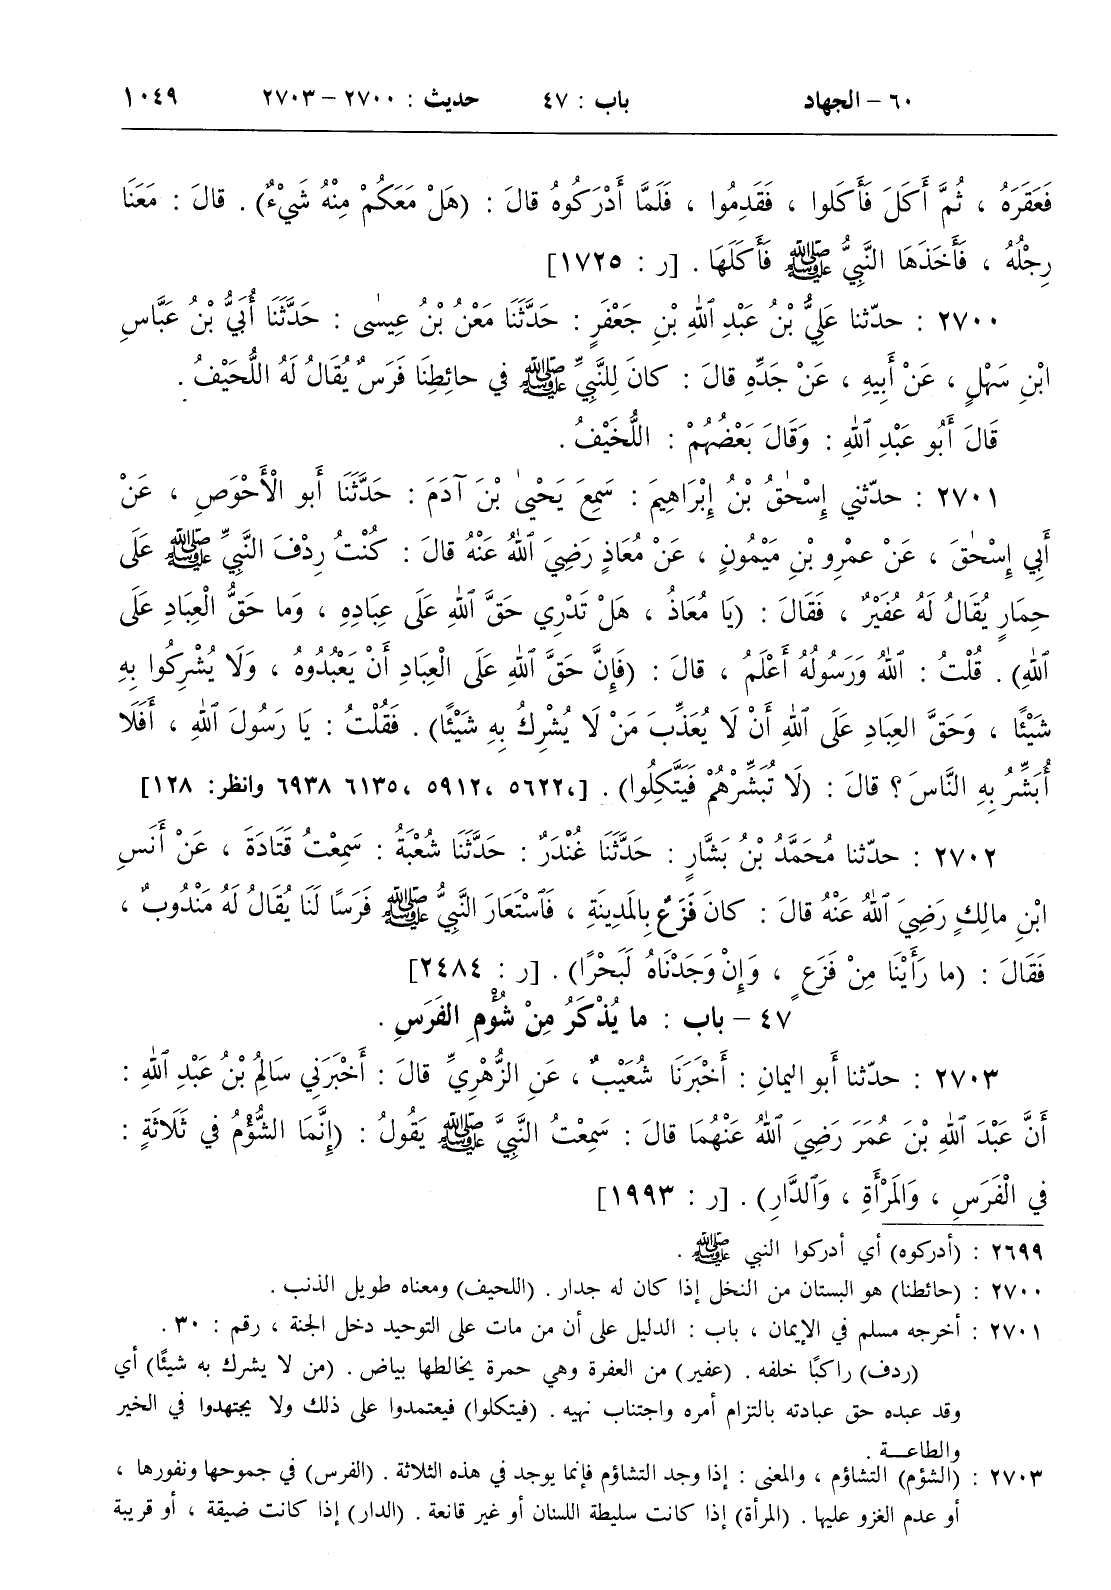 ٦٠ – الجهاد باب : ٤٧ حديث : ٢٧٠٠ – ٢٧٠٣ ١٠٤٩
فَعَقَرَهُ ، ثُمَّ أَكَلَ فَأَكَلوا ، فَقَدِمُوا ، فَلَمَّا أَدْرَكُوهُ قالَ : (هَلْ مَعَكُمْ مِنْهُ شَيْءٌ) . قالَ : مَعَنَا
رِجْلُهُ ، فَأَخَذَهَا النَّبِيُّ ﷺ فَأَكَلَهَا . [ر : ١٧٢٥]
٢٧٠٠ : حدّثنا عَلِيُّ بْنُ عَبْدِ ٱللهِ بْنِ جَعْفَرٍ : حَدَّثَنَا مَعْنُ بْنُ عِيسٰى : حَدَّثَنَا أُبَيُّ بْنُ عَبَّاسِ
ابْنِ سَهْلٍ ، عَنْ أَبِيهِ ، عَنْ جَدِّهِ قالَ : كانَ لِلنَّبِيِّ ﷺ في حائِطِنَا فَرَسٌ يُقَالُ لَهُ اللُّحَيْفُ .
قَالَ أَبُو عَبْدِ ٱللهِ : وَقَالَ بَعْضُهُمْ : اللُّخَيْفُ .
٢٧٠١ : حدّثني إِسْحٰقُ بْنُ إِبْرَاهِيمَ : سَمِعَ يَحْيٰى بْنَ آدَمَ : حَدَّثَنَا أَبو الْأَحْوَصِ ، عَنْ
أَبِي إِسْحٰقَ ، عَنْ عَمْرِو بْنِ مَيْمُونٍ ، عَنْ مُعَاذٍ رَضِيَ ٱللهُ عَنْهُ قالَ : كُنْتُ رِدْفَ النَّبِيِّ ﷺ عَلَى
حِمَارٍ يُقَالُ لَهُ عُفَيْرٌ ، فَقَالَ : (يَا مُعَاذُ ، هَلْ تَدْرِي حَقَّ ٱللهِ عَلَى عِبَادِهِ ، وَما حَقُّ الْعِبَادِ عَلَى
ٱللهِ) . قُلْتُ : ٱللهُ وَرَسُولُهُ أَعْلَمُ ، قالَ : (فَإِنَّ حَقَّ ٱللهِ عَلَى الْعِبَادِ أَنْ يَعْبُدُوهُ ، وَلَا يُشْرِكُوا بِهِ
شَيْئًا ، وَحَقَّ العِبَادِ عَلَى ٱللهِ أَنْ لَا يُعَذِّبَ مَنْ لَا يُشْرِكُ بِهِ شَيْئًا) . فَقُلْتُ : يَا رَسُولَ ٱللهِ ، أَفَلَا
أُبَشِّرُ بِهِ النَّاسَ ؟ قالَ : (لَا تُبَشِّرْهُمْ فَيَتَّكِلُوا) . [٥٦٢٢، ٥٩١٢، ٦١٣٥، ٦٩٣٨ وانظر: ١٢٨]
٢٧٠٢ : حدّثنا مُحَمَّدُ بْنُ بَشَّارٍ : حَدَّثَنَا غُنْدَرٌ : حَدَّثَنَا شُعْبَةُ : سَمِعْتُ قَتَادَةَ ، عَنْ أَنَسِ
ابْنِ مالِكٍ رَضِيَ ٱللهُ عَنْهُ قالَ : كانَ فَزَعٌ بِالمَدِينَةِ ، فَٱسْتَعَارَ النَّبِيُّ ﷺ فَرَسًا لَنَا يُقَالُ لَهُ مَنْدُوبٌ ،
فَقَالَ : (ما رَأَيْنَا مِنْ فَزَعٍ ، وَإِنْ وَجَدْنَاهُ لَبَحْرًا) . [ر : ٢٤٨٤]
٤٧ – باب : ما يُذْكَرُ مِنْ شُؤْمِ الفَرَسِ .
٢٧٠٣ : حدّثنا أَبو اليَمانِ : أَخْبَرَنَا شُعَيْبٌ ، عَنِ الزُّهْرِيِّ قالَ : أَخْبَرَنِي سَالِمُ بْنُ عَبْدِ ٱللهِ :
أَنَّ عَبْدَ ٱللهِ بْنَ عُمَرَ رَضِيَ ٱللهُ عَنْهُمَا قالَ : سَمِعْتُ النَّبِيَّ ﷺ يَقُولُ : (إِنَّمَا الشُّؤْمُ في ثَلَاثَةٍ :
في الْفَرَسِ ، وَالمَرْأَةِ ، وَٱلدَّارِ) . [ر : ١٩٩٣]
٢٦٩٩ : (أدركوه) أي أدركوا النبي ﷺ .
٢٧٠٠ : (حائطنا) هو البستان من النخل إذا كان له جدار . (اللحيف) ومعناه طويل الذنب .
٢٧٠١ : أخرجه مسلم في الإيمان ، باب : الدليل على أن من مات على التوحيد دخل الجنة ، رقم : ٣٠ .
(ردف) راكبًا خلفه . (عفير) من العفرة وهي حمرة يخالطها بياض . (من لا يشرك به شيئًا) أي
وقد عبده حق عبادته بالتزام أمره واجتناب نهيه . (فيتكلوا) فيعتمدوا على ذلك ولا يجتهدوا في الخير
والطاعـــة .
٢٧٠٣ : (الشؤم) التشاؤم ، والمعنى : إذا وجد التشاؤم فإنما يوجد في هذه الثلاثة . (الفرس) في جموحها ونفورها ،
أو عدم الغزو عليها . (المرأة) إذا كانت سليطة اللسنان أو غير قانعة . (الدار) إذا كانت ضيقة ، أو قريبة